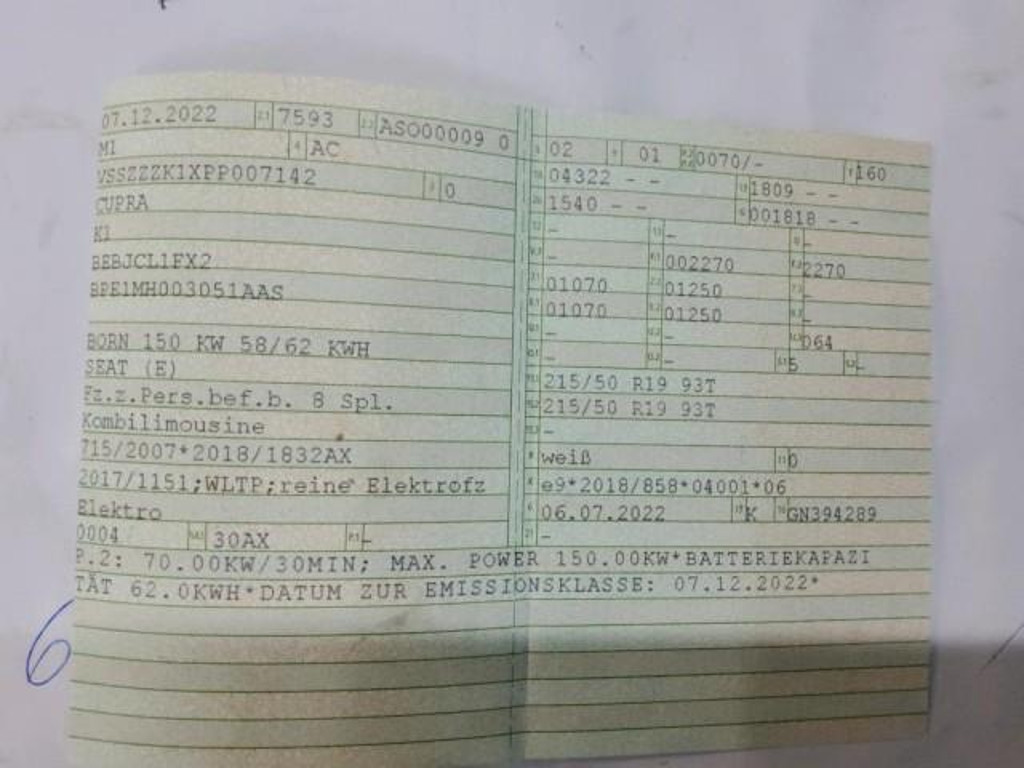 07.12.2022 7593 ASO00009 0
M1 AC
VSSZZZK1XPP007142 0
CUPRA
K1
BEBJCL1FX2
BPE1MH003051AAS
BORN 150 KW 58/62 KWH
SEAT (E)
Fz.z.Pers.bef.b. 8 Spl.
Kombilimousine
715/2007*2018/1832AX
2017/1151;WLTP;reine Elektrofz
Elektro
0004 30AX -
02 01 0070/- 160
04322 - - 1809 - -
1540 - - 001818 - -
- - -
- 002270 2270
01070 01250 -
01070 01250 -
- - 064
- - 5 -
215/50 R19 93T
215/50 R19 93T
-
weiß 0
e9*2018/858*04001*06
06.07.2022 K GN394289
-
P.2: 70.00KW/30MIN; MAX. POWER 150.00KW*BATTERIEKAPAZI
TÄT 62.0KWH*DATUM ZUR EMISSIONSKLASSE: 07.12.2022*
6